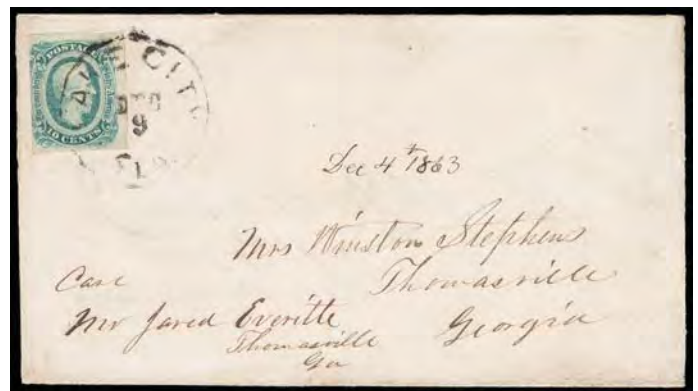 POSTAGE
TEN CENTS
CITY
DEC
9
FLO
Dec 4th 1863
Mrs Winston Stephens
Thomasville
Georgia
Care
Mr Jared Everitte
Thomasville
Ga